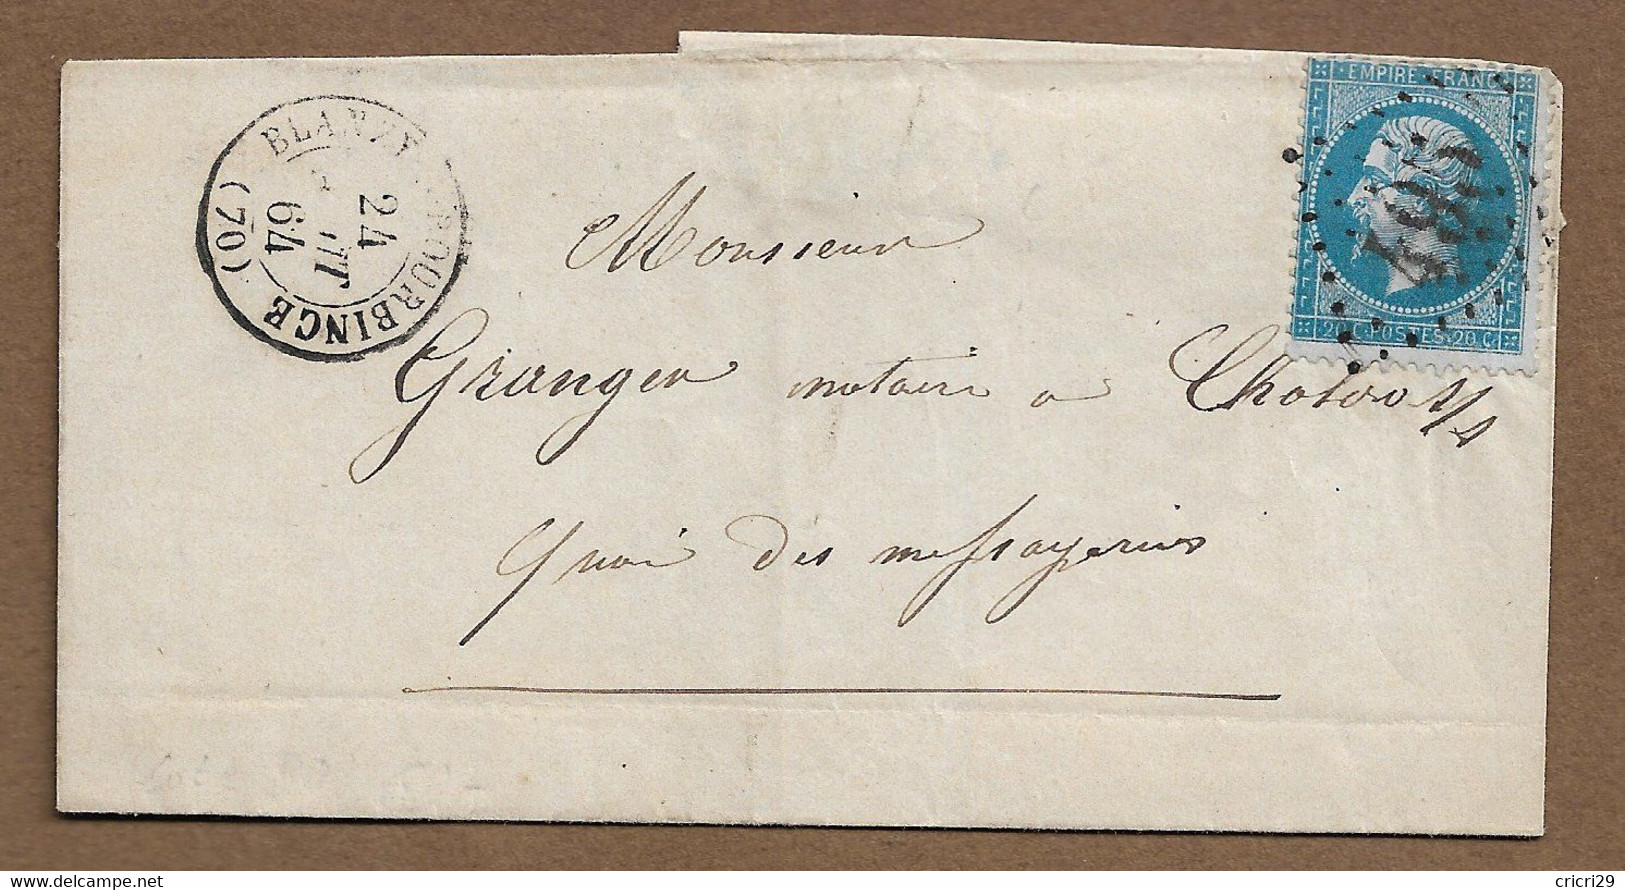 BLANZY-S-BOURBINCE
24
OUT
64
(70)
EMPIRE FRANC
20 C. POSTES 20 C.
Monsieur
Granger notaire a Chalon s/s
quai des messageries
www.delcampe.net
cricri29